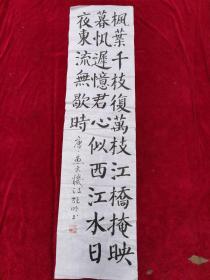 楓葉千枝復萬枝江橋掩映
暮帆遲憶君心似西江水日
夜東流無歇時
唐魚玄機